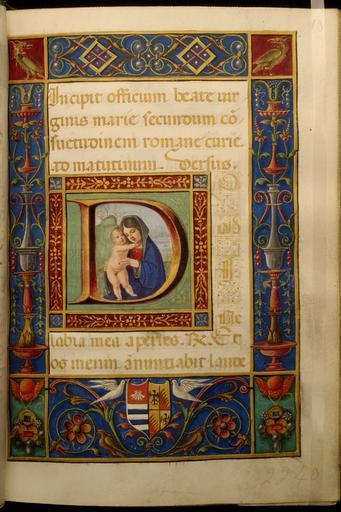 Incipit officium beate uir
ginis marie secundum cō
suetudinem romane curie.
ad matutinum. Versus.
D
labia mea aperies. R. Et
os meum ānuntiabit laude